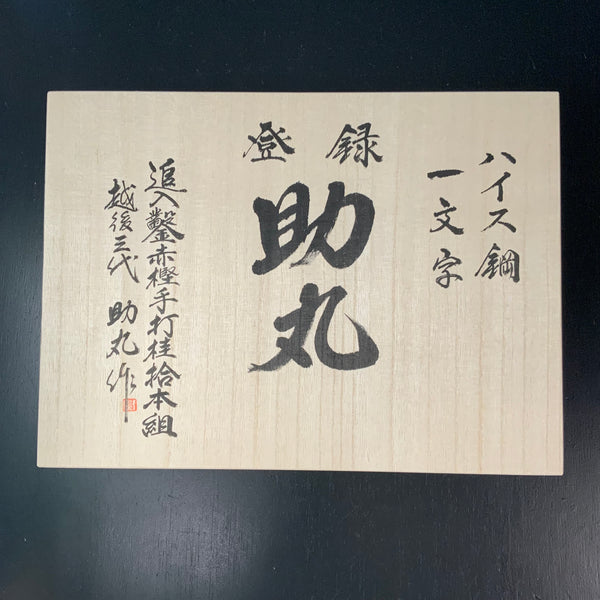 ハイス鋼
一文字
登録
助丸
追入鑿赤樫手打桂拾本組
越後三代 助丸作